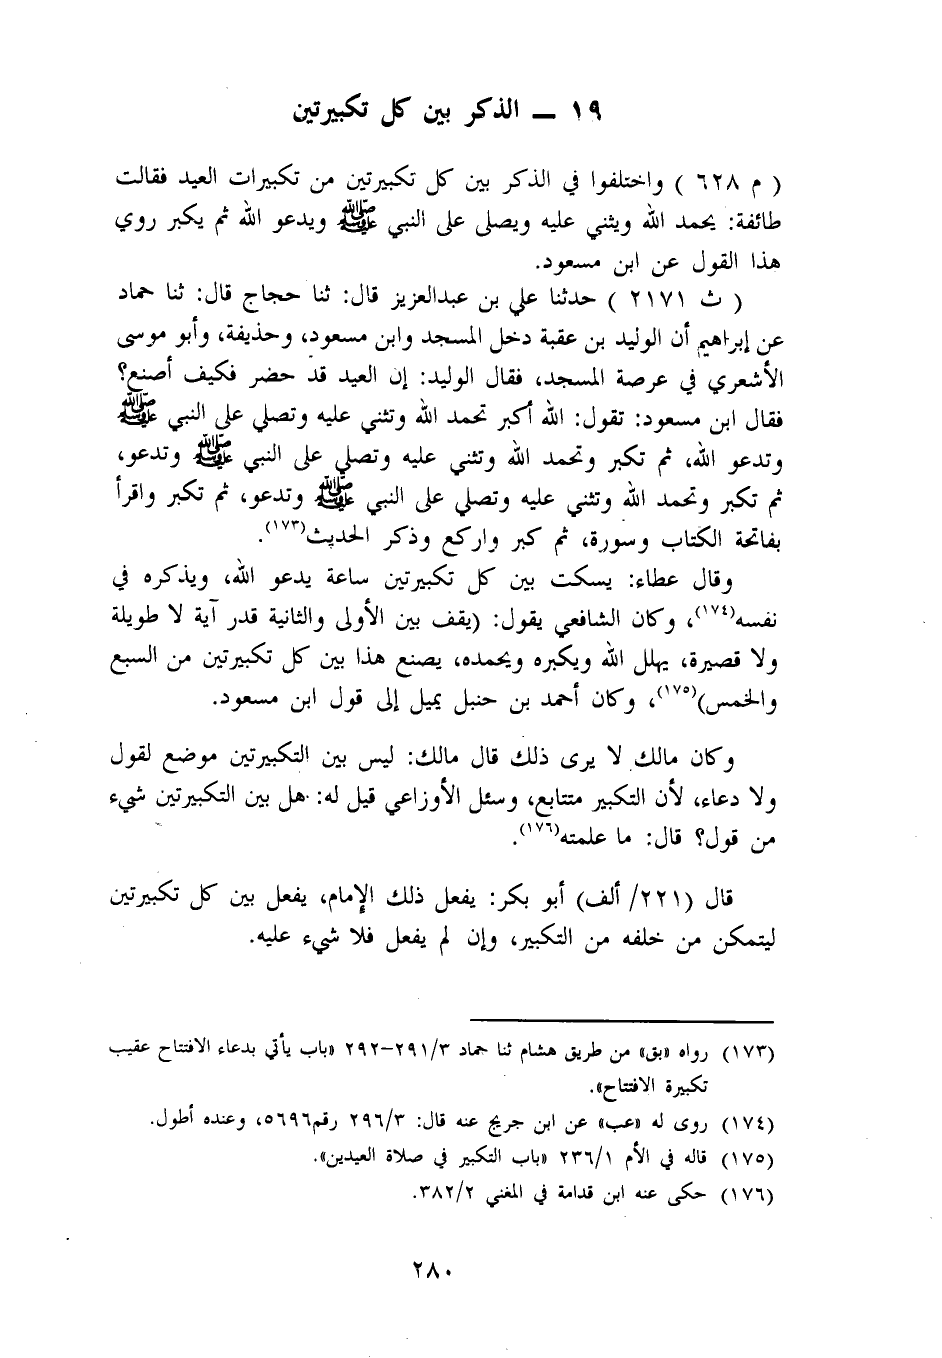 ١٩ ــ الذكر بين كل تكبيرتين
( م ٦٢٨ ) واختلفوا في الذكر بين كل تكبيرتين من تكبيرات العيد فقالت
طائفة: يحمد الله ويثني عليه ويصلى على النبي ﷺ ويدعو الله ثم يكبر روي
هذا القول عن ابن مسعود.
( ث ٢١٧١ ) حدثنا علي بن عبدالعزيز قال: ثنا حجاج قال: ثنا حماد
عن إبراهيم أن الوليد بن عقبة دخل المسجد وابن مسعود، وحذيفة، وأبو موسى
الأشعري في عرصة المسجد، فقال الوليد: إن العيد قد حضر فكيف أصنع؟
فقال ابن مسعود: تقول: الله أكبر تحمد الله وتثني عليه وتصلي على النبي ﷺ
وتدعو الله، ثم تكبر وتحمد الله وتثني عليه وتصلي على النبي ﷺ وتدعو،
ثم تكبر وتحمد الله وتثني عليه وتصلى على النبي ﷺ وتدعو، ثم تكبر واقرأ
بفاتحة الكتاب وسورة، ثم كبر واركع وذكر الحديث(١٧٣).
وقال عطاء: يسكت بين كل تكبيرتين ساعة يدعو الله، ويذكره في
نفسه(١٧٤)، وكان الشافعي يقول: (يقف بين الأولى والثانية قدر آية لا طويلة
ولا قصيرة، يهلل الله ويكبره ويحمده، يصنع هذا بين كل تكبيرتين من السبع
والخمس)(١٧٥)، وكان أحمد بن حنبل يميل إلى قول ابن مسعود.
وكان مالك لا يرى ذلك قال مالك: ليس بين التكبيرتين موضع لقول
ولا دعاء، لأن التكبير متتابع، وسئل الأوزاعي قيل له: هل بين التكبيرتين شيء
من قول؟ قال: ما علمته(١٧٦).
قال (٢٢١/ ألف) أبو بكر: يفعل ذلك الإمام، يفعل بين كل تكبيرتين
ليتمكن من خلفه من التكبير، وإن لم يفعل فلا شيء عليه.
(١٧٣) رواه «بق» من طريق هشام ثنا حماد ٢٩١/٣–٢٩٢ «باب يأتي بدعاء الافتتاح عقيب
تكبيرة الافتتاح».
(١٧٤) روى له «عب» عن ابن جريج عنه قال: ٢٩٦/٣ رقم٥٦٩٦، وعنده أطول.
(١٧٥) قاله في الأم ٢٣٦/١ «باب التكبير في صلاة العيدين».
(١٧٦) حكى عنه ابن قدامة في المغني ٣٨٢/٢.
٢٨٠